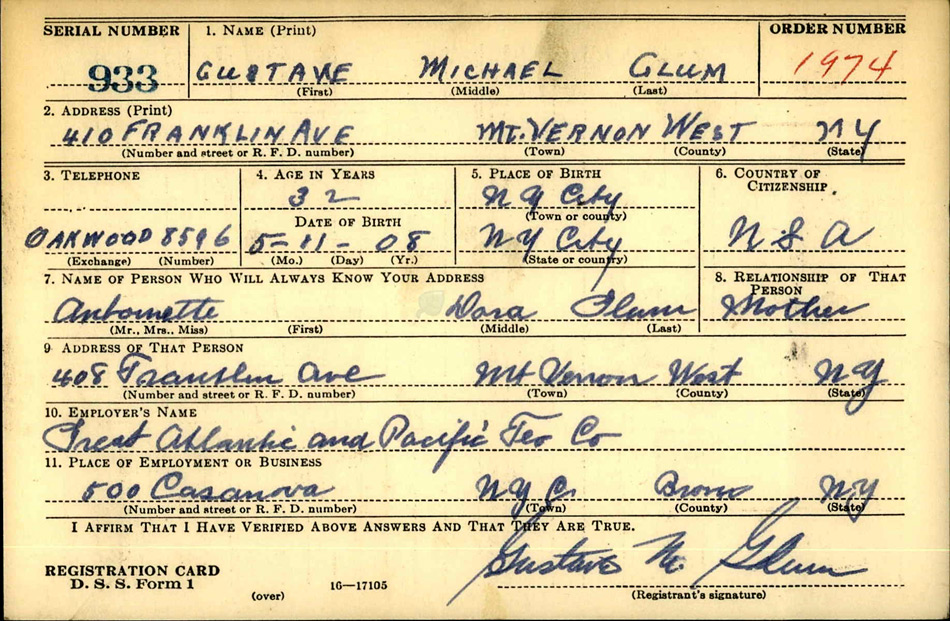 SERIAL NUMBER 1. NAME (Print) ORDER NUMBER
933 GUSTAVE MICHAEL GLUM 1974
(First) (Middle) (Last)
2. ADDRESS (Print)
410 FRANKLIN AVE MT. VERNON WEST NY
(Number and street or R. F. D. number) (Town) (County) (State)
3. TELEPHONE 4. AGE IN YEARS 5. PLACE OF BIRTH 6. COUNTRY OF CITIZENSHIP
32 NY City
DATE OF BIRTH (Town or county)
OAKWOOD 8596 5-11-08 NY City USA
(Exchange) (Number) (Mo.) (Day) (Yr.) (State or country)
7. NAME OF PERSON WHO WILL ALWAYS KNOW YOUR ADDRESS 8. RELATIONSHIP OF THAT PERSON
Antoinette Dora Glum Mother
(Mr., Mrs., Miss) (First) (Middle) (Last)
9 ADDRESS OF THAT PERSON
408 Franklin Ave Mt Vernon West NY
(Number and street or R. F. D. number) (Town) (County) (State)
10. EMPLOYER'S NAME
Great Atlantic and Pacific Tea Co
11. PLACE OF EMPLOYMENT OR BUSINESS
500 Casanova NYC Bronx NY
(Number and street or R. F. D. number) (Town) (County) (State)
I AFFIRM THAT I HAVE VERIFIED ABOVE ANSWERS AND THAT THEY ARE TRUE.
Gustave M. Glum
REGISTRATION CARD
D. S. S. Form 1 16—17105
(over) (Registrant's signature)